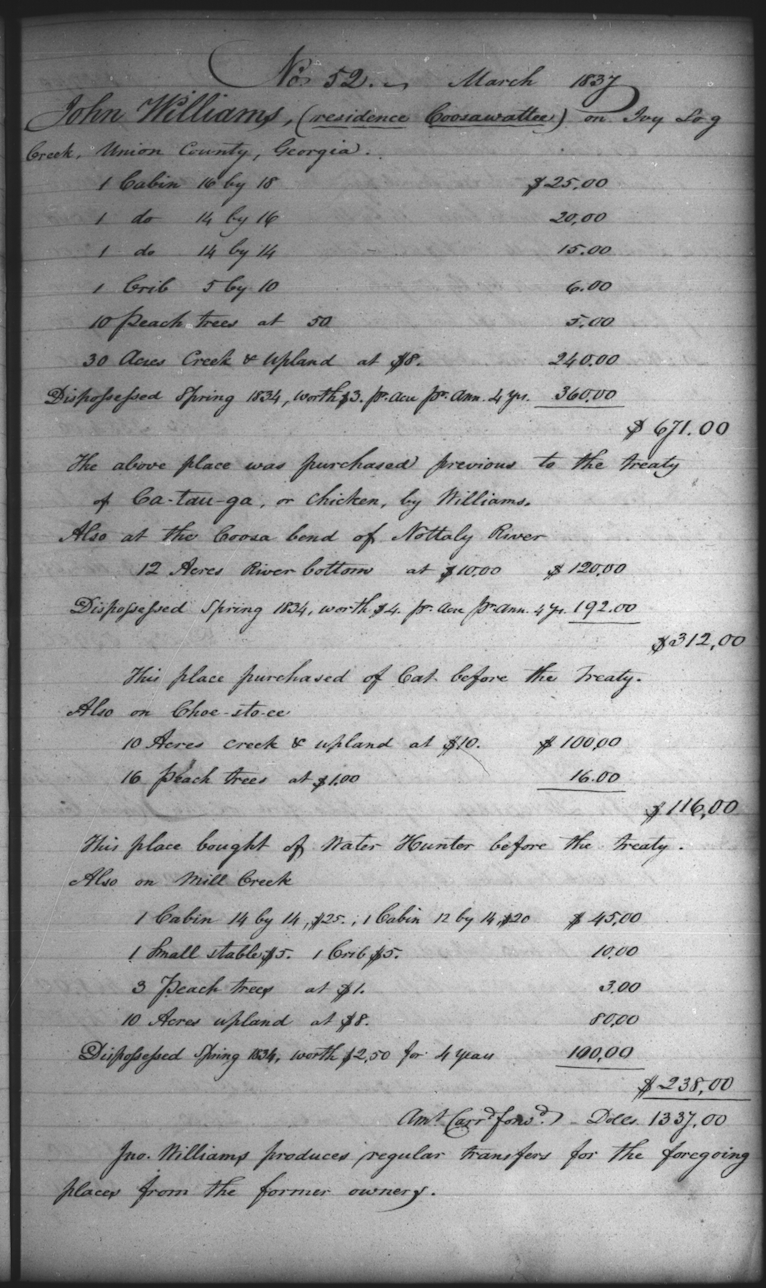 No 52. March 1837
John Williams, (residence Coosawattee) on Ivy Log
Creek, Union County, Georgia.
1 Cabin 16 by 18 $25.00
1 do 14 by 16 20,00
1 do 14 by 14 15.00
1 Crib 5 by 10 6.00
10 Peach trees at 50 5.00
30 Acres Creek & Upland at $8. 240.00
Dispossessed Spring 1834, worth $3. pr. Acre pr. Ann. 4 yrs. 360.00
$671.00
The above place was purchased previous to the treaty
of Ca-tau-ga, or Chicken, by Williams.
Also at the Coosa bend of Nottaly River
12 Acres River bottom at $10.00 $120.00
Dispossessed Spring 1834, worth $4. pr. Acre pr. Ann. 4 yr. 192.00
$312,00
This place purchased of Cat before the Treaty.
Also on Choe-sto-ee
10 Acres creek & upland at $10. $100.00
16 Peach trees at $1.00 16.00
$116,00
This place bought of Water Hunter before the treaty.
Also on Mill Creek
1 Cabin 14 by 14, $25., 1 Cabin 12 by 14, $20 $45.00
1 Small stable $5. 1 Crib $5. 10.00
3 Peach trees at $1. 3.00
10 Acres upland at $8. 80.00
Dispossessed Spring 1834, worth $2,50 for 4 years 100,00
$238,00
Amt. Carrd. forwd. Dolls 1337,00
Jno. Williams produces regular transfers for the foregoing
places from the former owners.